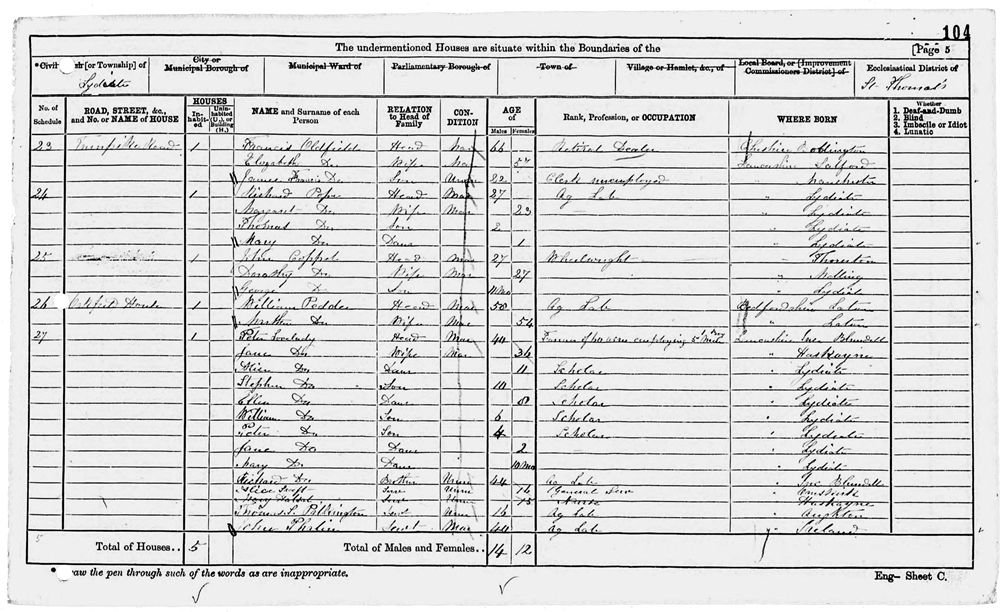 104
The undermentioned Houses are situate within the Boundaries of the [Page 5
Civil [or Township] of City or Municipal Borough of Municipal Ward of Parliamentary Borough of Town of Village or Hamlet, &c., of Local Board, or [Improvement Commissioners District] of Ecclesiastical District of
Lydiate St Thomas's
No. of Schedule ROAD, STREET, &c., and No. or NAME of HOUSE HOUSES In-habit-ed Unin-habited (U.), or Building (B.) NAME and Surname of each Person RELATION to Head of Family CON-DITION AGE of Males Females Rank, Profession, or OCCUPATION WHERE BORN Whether 1. Deaf-and-Dumb 2. Blind 3. Imbecile or Idiot 4. Lunatic
23 Turnpike Road 1 Francis Oldfield Head Mar 66 Retired Dealer Cheshire
Elizabeth Do Wife Mar 57 Lancashire Salford
James Francis Do Son Unm 22 Clerk unemployed " Manchester
24 1 Richard Pope Head Mar 27 Ag Lab " Lydiate
Margaret Do Wife Mar 23 " Lydiate
Thomas Do Son 2 " Lydiate
Mary Do Daur 1 " Lydiate
25 1 John Coppel Head Mar 27 Wheelwright " Thornton
Dorothy Do Wife Mar 27 " Melling
George Do Son 11 Mo " Lydiate
26 House 1 William Peddes Head Mar 58 Ag Lab Bedfordshire Luton
Do Wife Mar 54 " Luton
27 1 Peter Lovelady Head Mar 44 Farmer of acres employing 5 Men 1 Boy Lancashire Ince Blundell
Jane Do Wife Mar 36 " Haskayne
Do Daur 11 Scholar " Lydiate
Stephen Do Son 10 Scholar " Lydiate
Ellen Do Daur 8 Scholar " Lydiate
William Do Son 6 Scholar " Lydiate
Peter Do Son 4 Scholar " Lydiate
Jane Do Daur 2 " Lydiate
Mary Do Daur 10 Mo " Lydiate
Richard Do Brother Unm 44 Ag Lab " Ince Blundell
Alice Swift Serv Unm 16 General Serv " Ormskirk
Mary Serv Unm 15 Nurse " Haskayne
Thomas Pilkington Servt Unm 16 Ag Lab " Aughton
John Servt Mar 44 Ag Lab " Ireland
5 Total of Houses.. 5 Total of Males and Females.. 14 12
aw the pen through such of the words as are inappropriate. Eng— Sheet C.